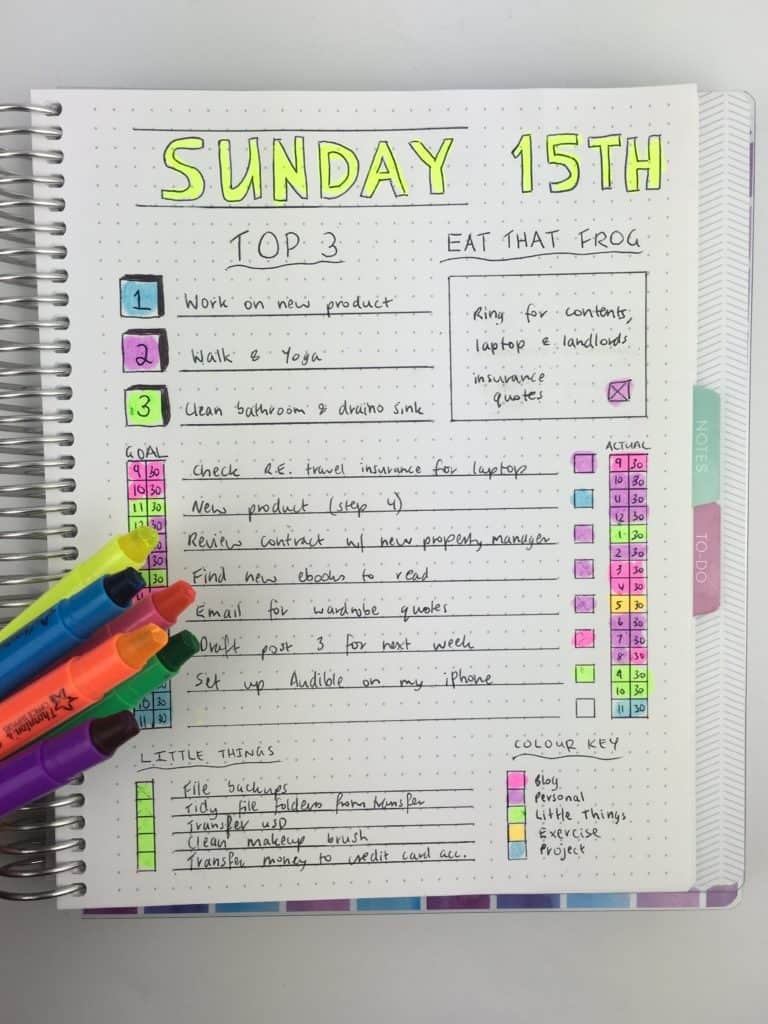 SUNDAY 15TH
TOP 3
EAT THAT FROG
1 Work on new product
2 Walk & Yoga
3 Clean bathroom & draino sink
Ring for contents,
laptop & landlords
insurance
quotes
GOAL
9 30
10 30
11 30
30
30
10 30
11 30
Check R.E. travel insurance for laptop
New product (step 4)
Review contract w/ new property manager
Find new ebooks to read
Email for wardrobe quotes
Draft post 3 for next week
Set up Audible on my iphone
ACTUAL
9 30
10 30
11 30
12 30
1 30
2 30
3 30
4 30
5 30
6 30
7 30
8 30
9 30
10 30
11 30
NOTES
TO-DO
LITTLE THINGS
File backups
Tidy file folders from transfer
Transfer USD
Clean makeup brush
Transfer money to credit card acc.
COLOUR KEY
Blog
Personal
Little Things
Exercise
Project